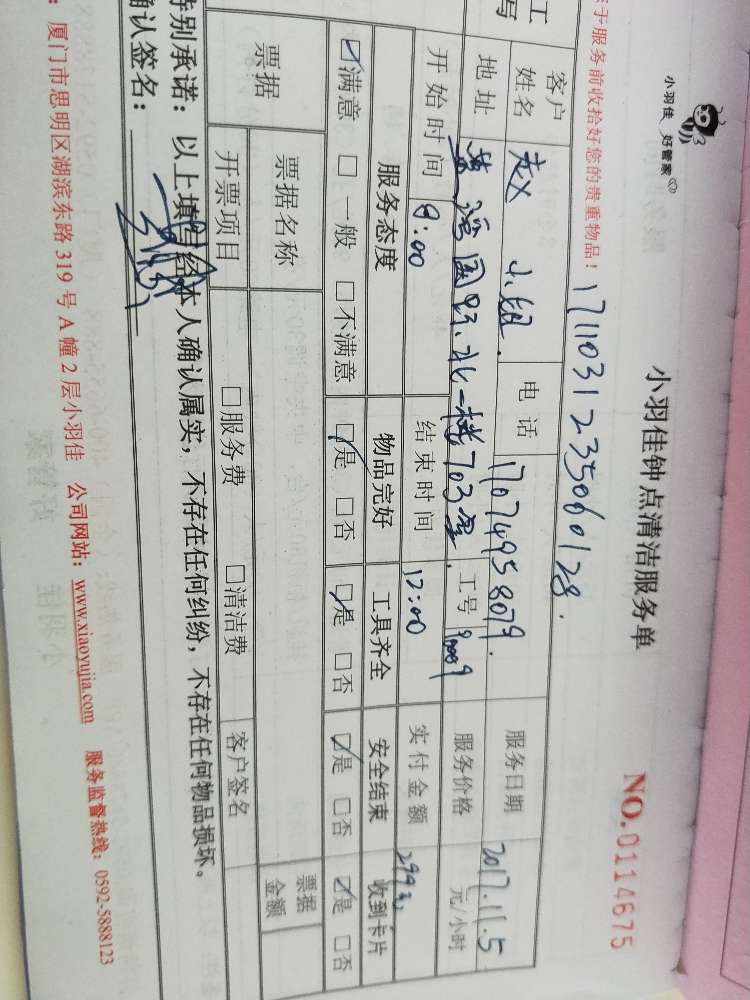 小羽佳 好管家
小羽佳钟点清洁服务单
NO.0114675
于服务前收拾好您的贵重物品！
1711031235060128.
客户姓名 赵小姐. 电话 17074958079. 服务日期 2017.11.5
地址 703室. 工号 服务价格 元/小时
开始时间 8:00 结束时间 12:00 实付金额
服务态度 物品完好 工具齐全 安全结束 收到卡片
☑满意 □一般 □不满意 ☑是 □否 ☑是 □否 ☑是 □否 ☑是 □否
票据 票据名称 票据金额
开票项目 □服务费 □清洁费 客户签名
特别承诺：以上填写经本人确认属实，不存在任何纠纷，不存在任何物品损坏。
确认签名：
：厦门市思明区湖滨东路 319 号 A 幢 2 层小羽佳 公司网站：www.xiaoyujia.com 服务监督热线：0592-5888123